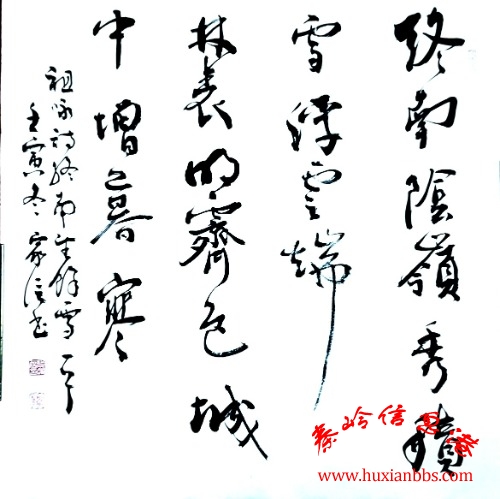 终南陰嶺秀積
雪浮雲端
林表明霽色城
中增暮寒
祖咏詩终南望餘雪一首
壬寅冬家信书
秦岭信息港
www.huxianbbs.com